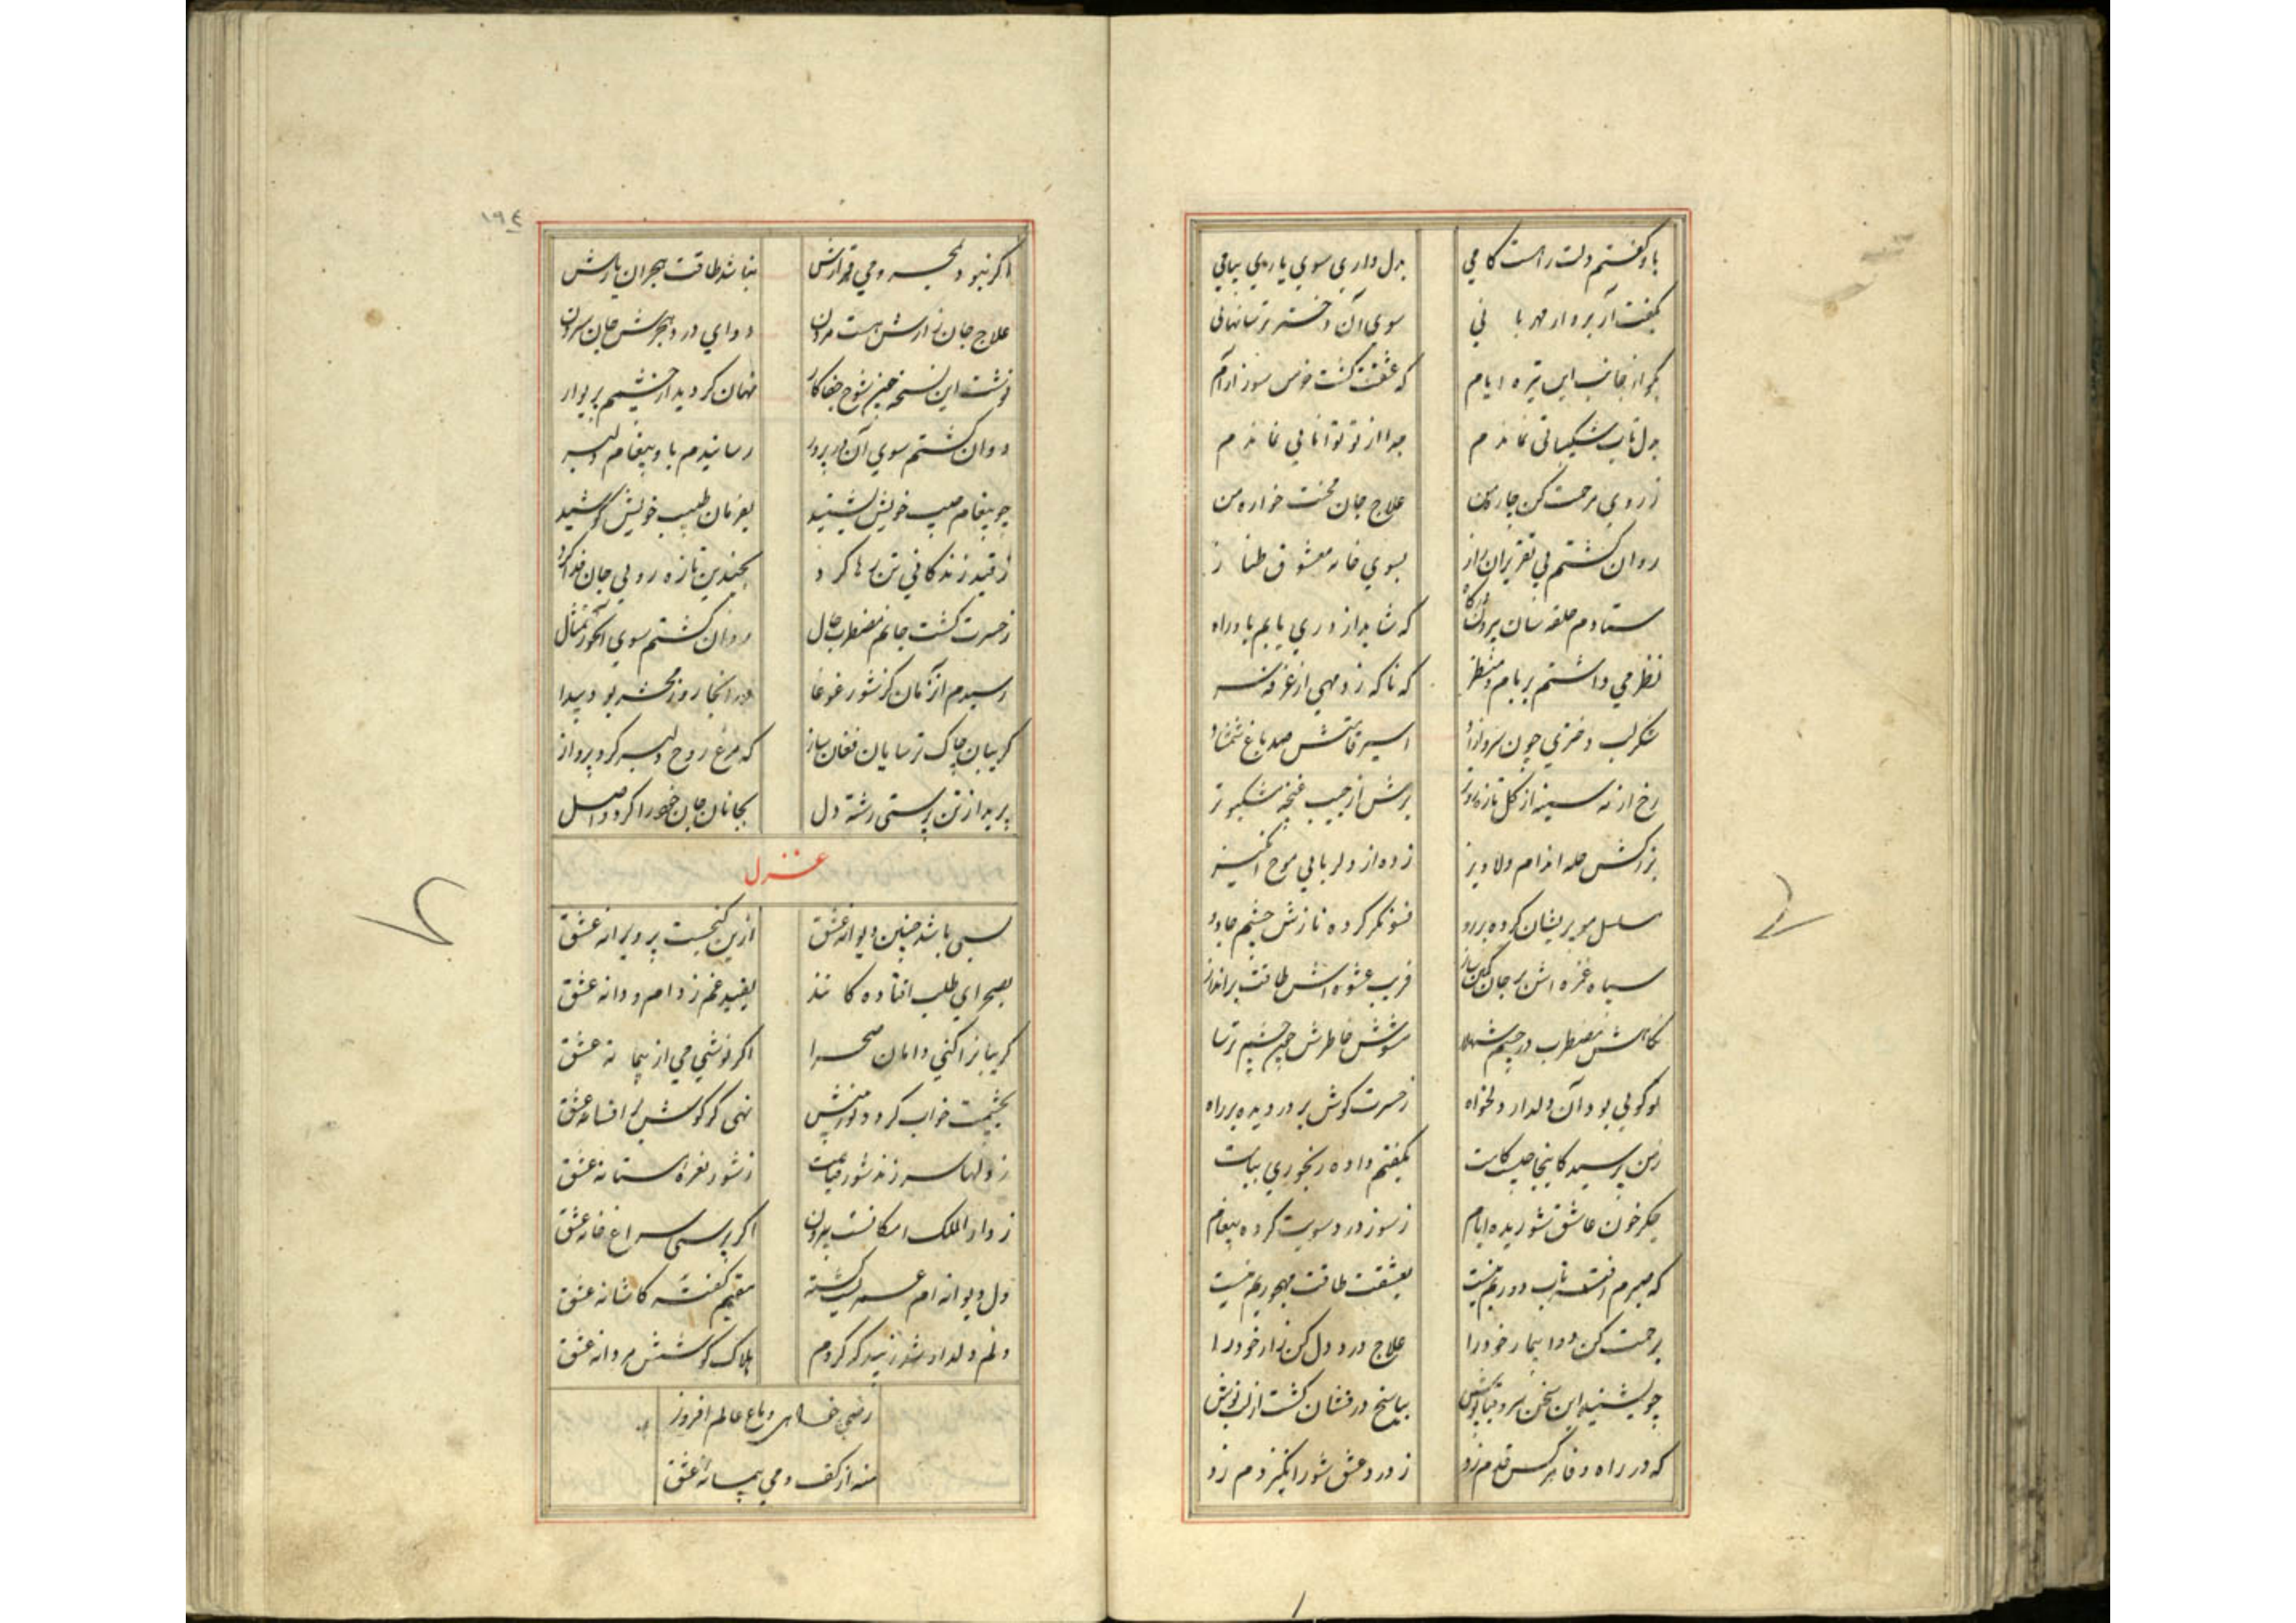 باو گفتم دلت راهست کامی بدل داری سوی یاری پیامی
بگفت آری برو از مهربانی سوی آن دختر ترسا نهانی
بگو از جانب این تیره ایام که عشقت گشت خرمن سوز آرام
بدل تاب شکیبائی نماندم جدا از تو توانایی نماندم
ز روی مرحمت کن چاره من علاج جان محنت خواره من
روان گشتم پی تقریر آن راز بسوی خانه معشوق طناز
ستادم حلقه سان بر درگاه که شاید از دری یابم باو راه
نظر می داشتم بر بام و منظر که ناگه زد مهی از غرفه سر
شکر لب دختری چون سرو آزاد اسیر قامتش صد باغ شمشاد
رخ از نسرینه از گل تازه روتر برش از جیب غنچه مشکبوتر
نزاکتش حله اندام دلاویز زده از دلربایی موج انگیز
سلسل مو پریشان کرده بر رو فسونگر کرده نازش چشم جادو
سپاه غمزه اش بر جان کمین ساز فریب عشوه اش طاقت برانداز
نگاهش مضطرب در چشم شهلا مشوش خاطرش چون چشم ترسا
تو گویی بود آن دلدار دلخواه ز حسرت گوش بر در دیده بر راه
ز من پرسید کاینجا چیست کارت بگفتم داده رنجوری پیامت
جگر خون عاشق شوریده ایام ز سوز درد سویت کرده پیغام
که صبرم رفته تاب دوریم نیست بعشقت طاقت مهجوریم نیست
برحمت کن دوا بیمار خود را علاج درد دل کن زار خود را
چو بشنید این سخن سرو قباپوش بپاسخ درفشان گشت از لب نوش
که در راه وفا هر کس قدم زد ز درد عشق شورانگیز دم زد
۱۹۴
اگر نبود بمحرومی قرارش نباشد طاقت هجران یارش
علاج جان زارش هست مردن دوای درد هجرش جان سپردن
نوشت این نسخه چون شوخ جفاکار نهان گردید از چشمم پریوار
دوان گشتم سوی آن درد پرور رسانیدم باو پیغام دلبر
چو پیغام حبیب خویش بشنید بفرمان طبیب خویش کوشید
ز قید زندگانی تن رها کرد بچندین تازه رویی جان فدا کرد
ز حسرت گشت جانم مضطرب حال روان گشتم سوی آن حور تمثال
رسیدم آن زمان کز شور غوغا در آنجا روز محشر بود پیدا
گریبان چاک ترسایان فغان ساز که مرغ روح دلبر کرد پرواز
برید از تن پرستی رشته دل بجانان جان خود را کرد واصل
غزل
بسی باشد چنین دیوانه عشق ازین گنجست پر ویرانه عشق
بصحرای طلب افتاده کانند بقید غم ز دام و دانه عشق
گریبانرا کنی دامان صحرا اگر نوشی می از پیمانه عشق
بچشمت خواب گردد نوش نیش نهی گر گوش بر افسانه عشق
ز دلها سر زند شور قیامت ز شور نعره مستانه عشق
ز دار الملک امکانست بیرون اگر پرسی سراغ خانه عشق
دل دیوانه ام عمریست گشته مقیم گوشه کاشانه عشق
دلم دلدار شد زنبد که کردم هلاک کوشش مردانه عشق
رضی خواهی دماغ عالم افروز
منه از کف دمی پیمانه عشق